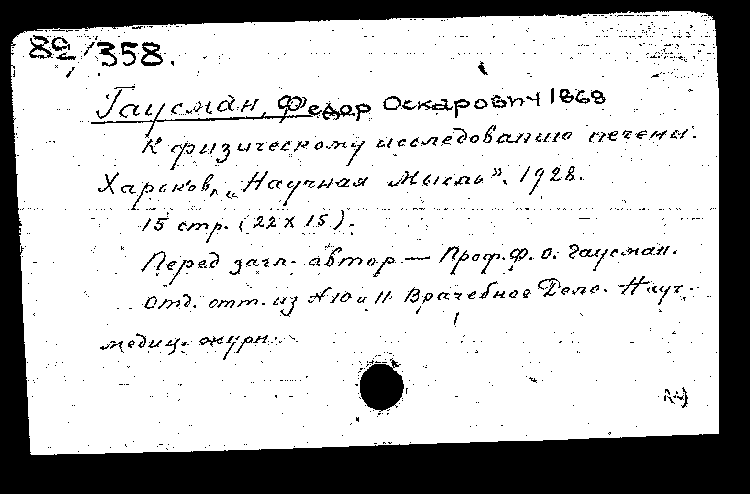 89/358.
Гаусман, Федор Оскарович 1868
К физическому исследованию печени.
Харьков, „Научная Мысль". 1928.
15 стр. (22 x 15).
Перед загл. автор — Проф. Ф. О. Гаусман.
Отд. отт. из № 10 и 11 Врачебное Дело. Науч.
медиц. журн.